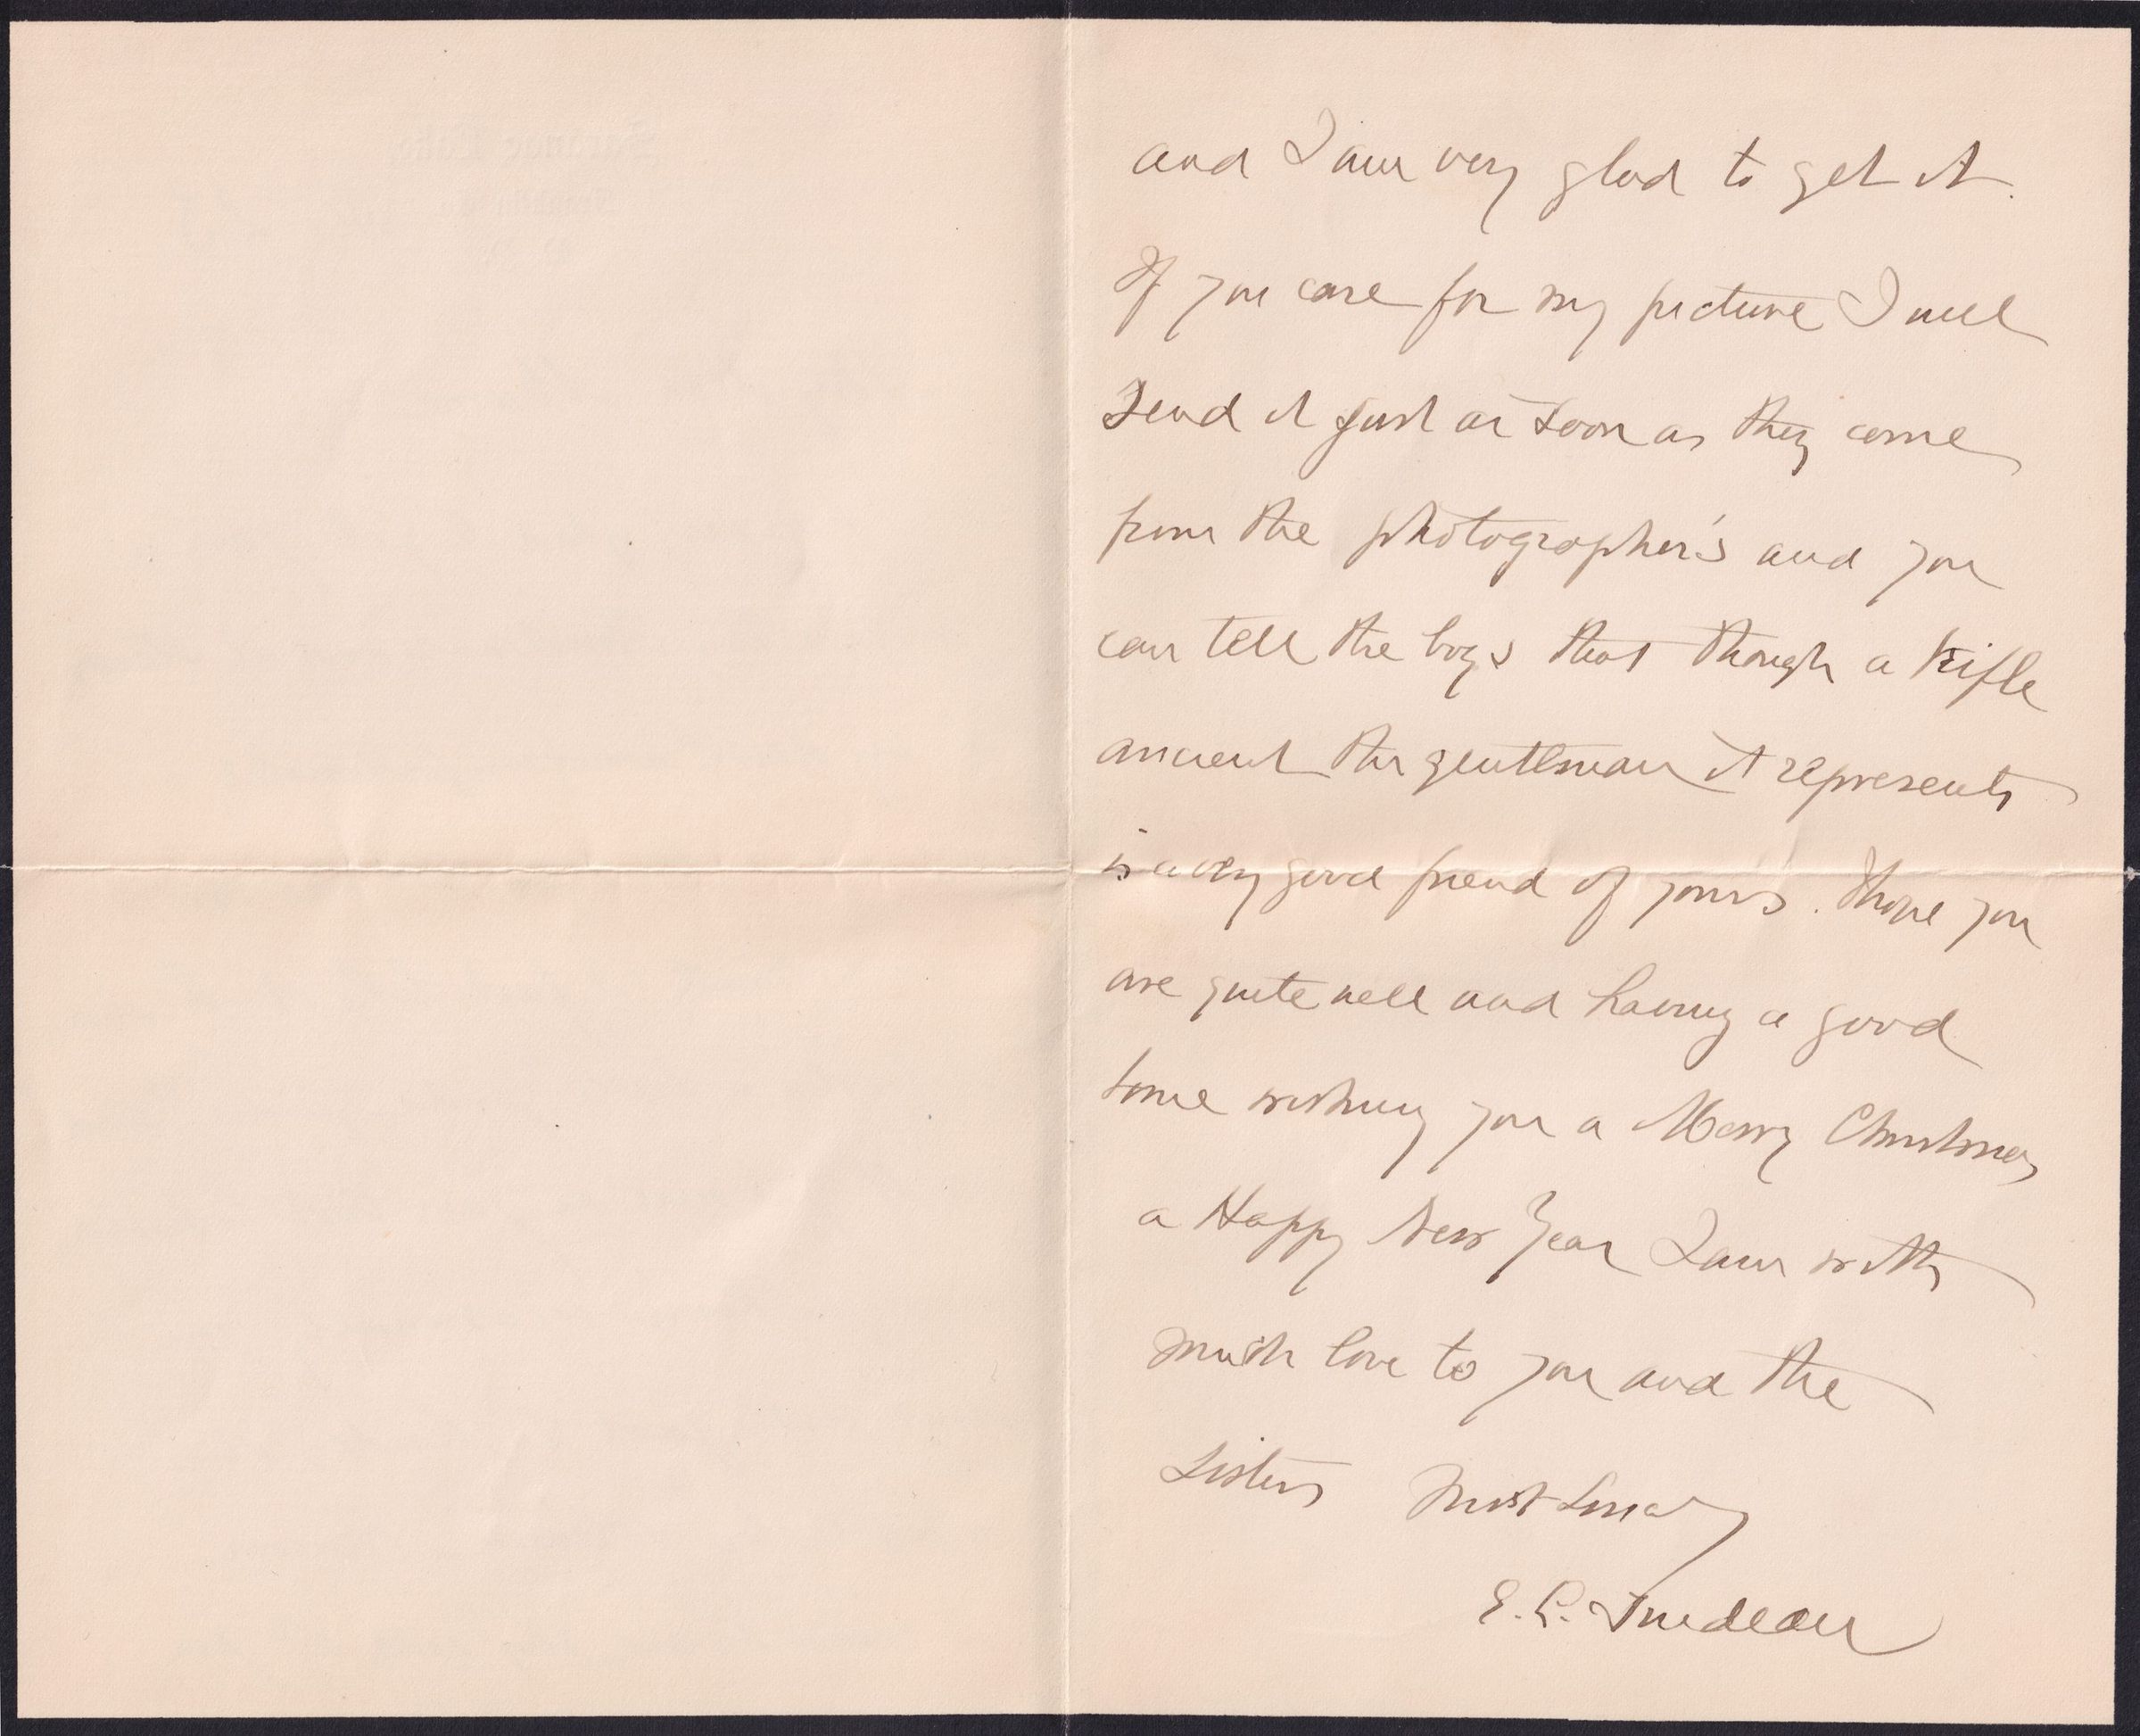 Saranac Lake,
and I am very glad to get it.
If you care for my picture I will
send it just as soon as they come
from the photographer's and you
can tell the boys that though a trifle
ancient the gentleman it represents
is a very good friend of yours. I hope you
are quite well and having a good
time wishing you a Merry Christmas
a Happy New Year I am with
much love to you and the
Sisters Most Sincerely
E. L. Trudeau